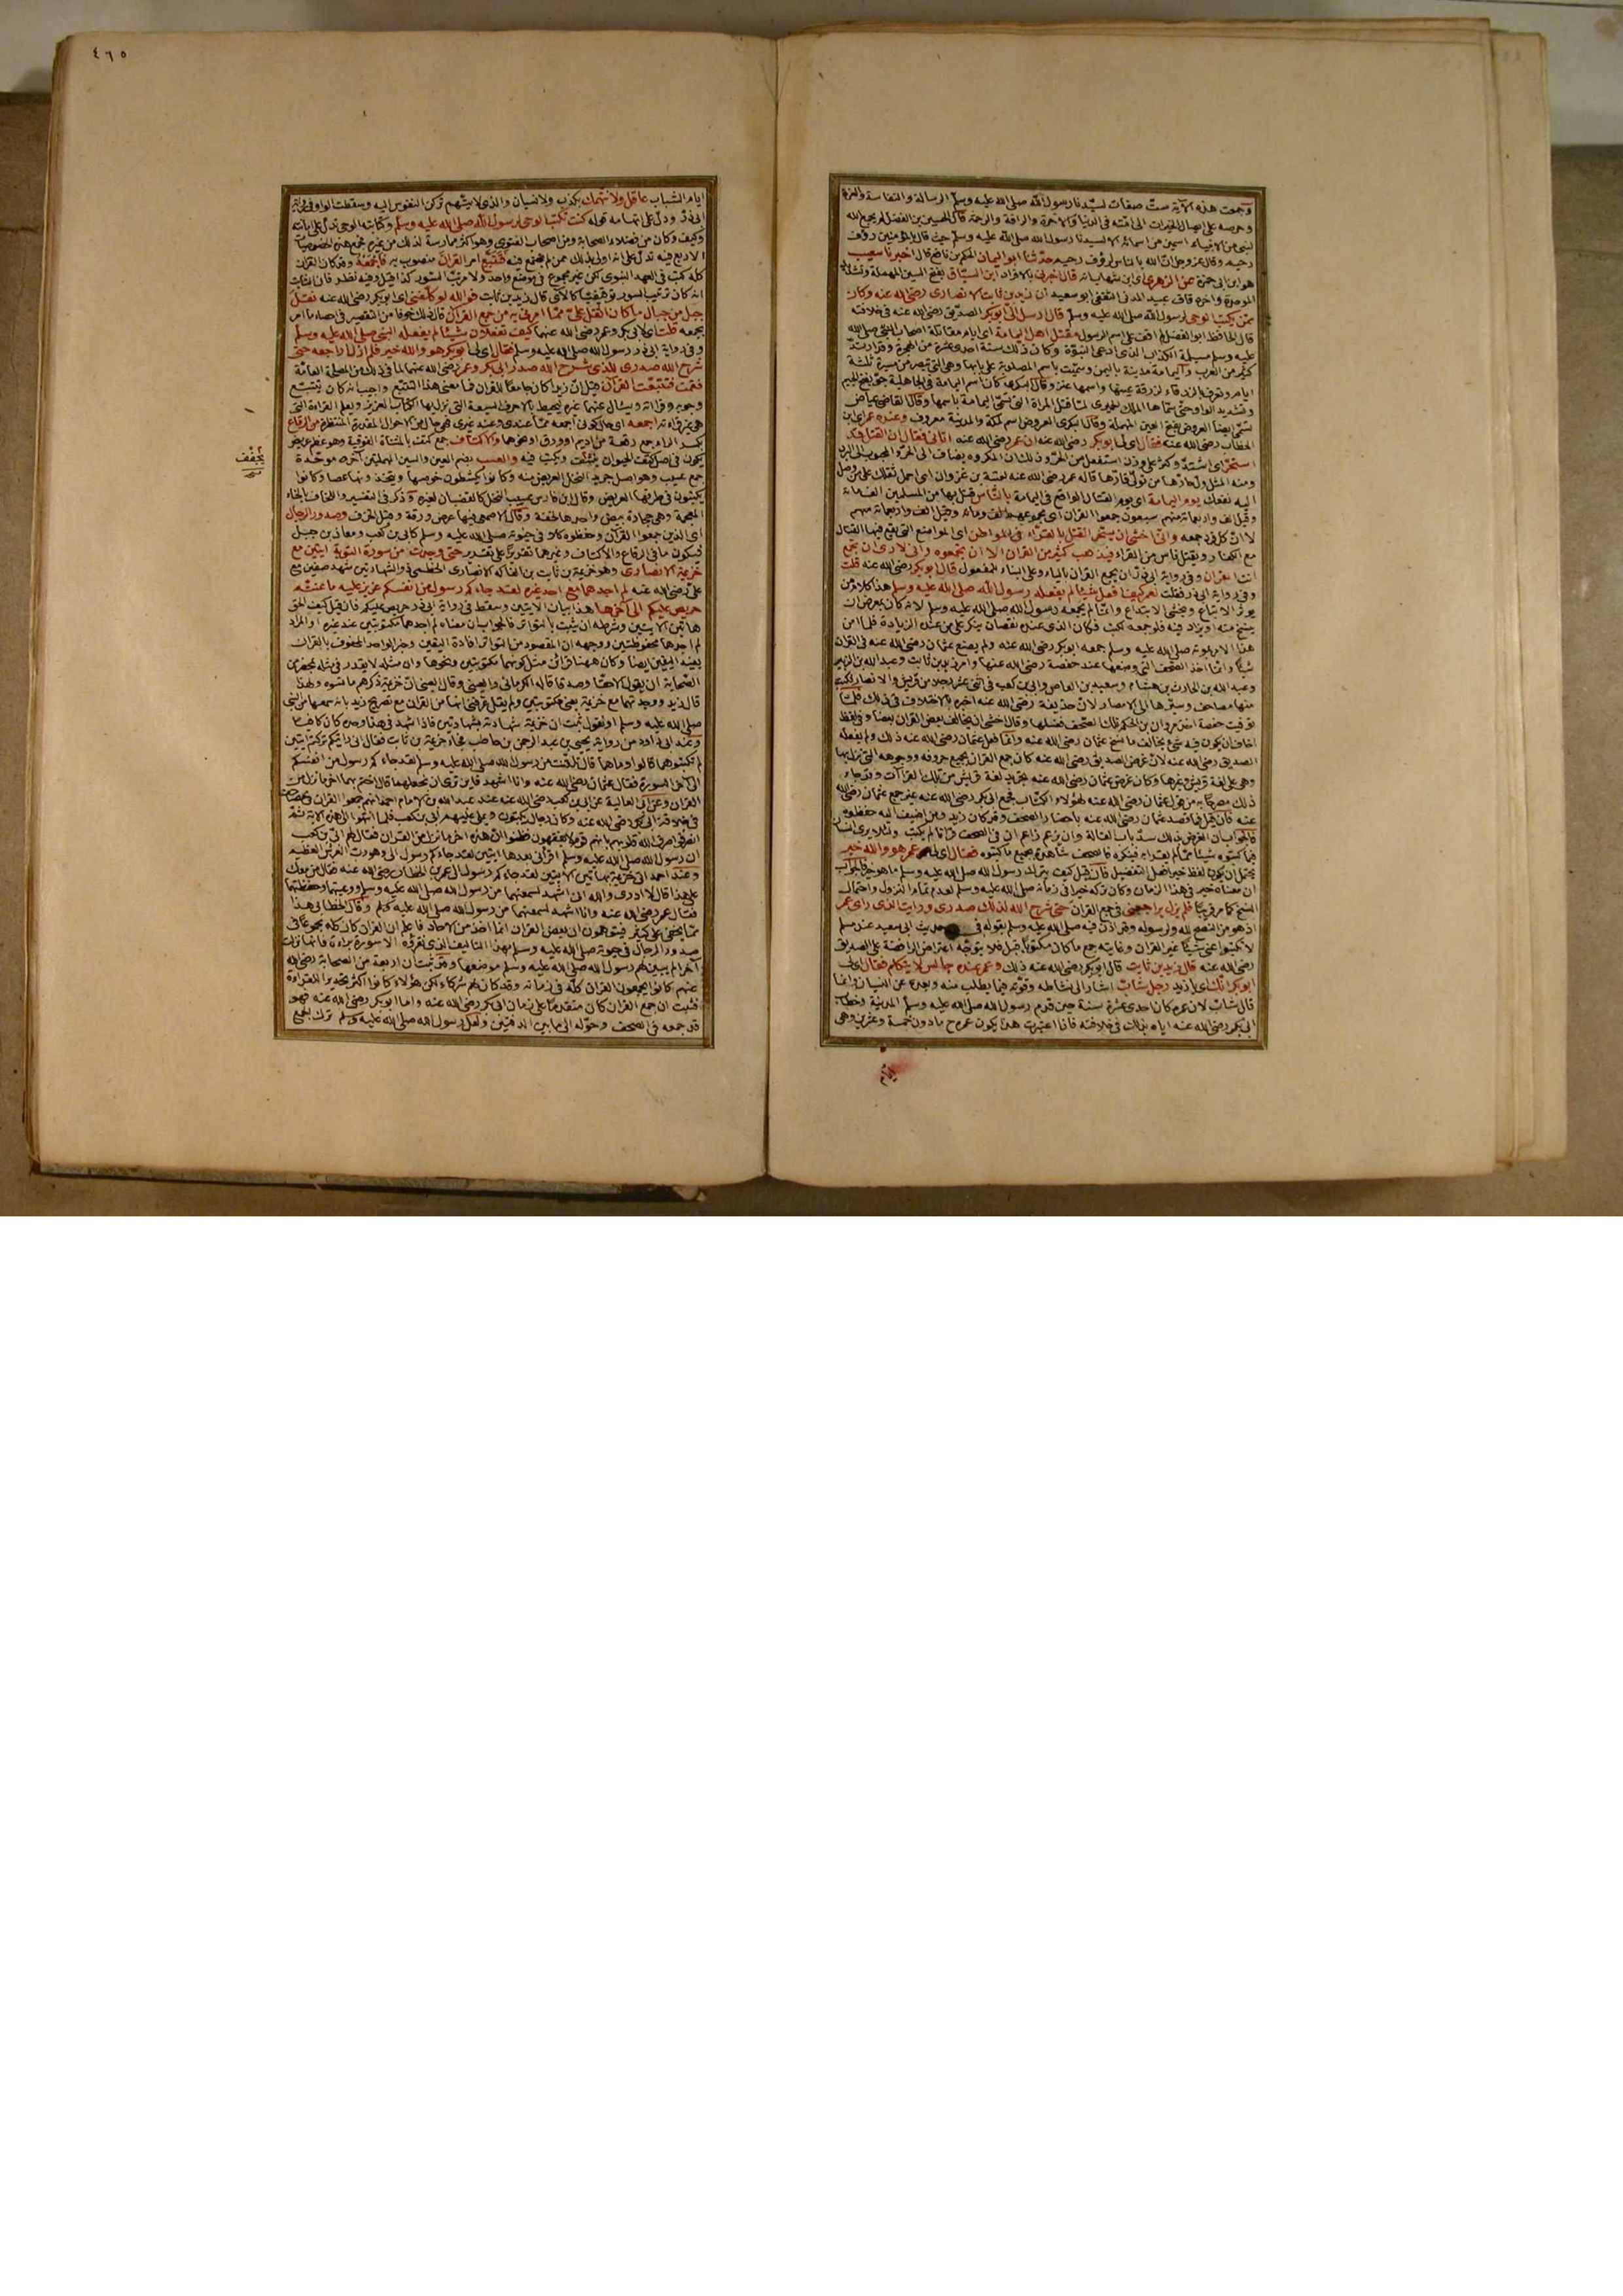 وجمعت هذه الآية ست صفات لسيدنا رسول الله صلى الله عليه وسلم الرسالة والنفاسة والعزة
وحرصه على ايصال الخيرات الى امته في الدنيا والآخرة والرافة والرحمة قال الحسين بن الفضل لم يجمع الله
لنبي من الانبياء اسمين من اسمائه الا لسيدنا رسول الله صلى الله عليه وسلم حيث قال بالمؤمنين رؤف
رحيم وقال عز وجل ان الله بالناس لرؤف رحيم حدثنا ابو اليمان الحكم بن نافع قال اخبرنا شعيب
هو ابن ابي حمزة عن الزهري اي ابن شهاب انه قال اخبرني بالافراد ابن السباق بفتح السين المهملة وتشديد
الموحدة واخره قاف عبيد المدني الثقفي ابو سعيد ان زيد بن ثابت الانصاري رضي الله عنه وكان
ممن يكتب الوحي لرسول الله صلى الله عليه وسلم قال ارسل الي ابو بكر الصديق رضي الله عنه في خلافته
قال الحافظ ابو الفضل لم اقف على اسم الرسول مقتل اهل اليمامة اي ايام مقاتلة اصحاب النبي صلى الله
عليه وسلم مسيلمة الكذاب الذي ادعى النبوة وكان ذلك سنة احدى عشرة من الهجرة وقد ارتد
كثير من العرب واليمامة مدينة باليمن وسميت باسم المصلوبة على بابها وهي التي تبصر من مسيرة ثلثة
ايام وتعرف بالزرقاء لزرقة عينها واسمها عنز وقال البكري كان اسم اليمامة في الجاهلية جو بفتح الجيم
وتشديد الواو حتى سماها الملك الحميري لما قتل المراة التي تسمى اليمامة باسمها وقال القاضي عياض
تسمى ايضا العروض بفتح العين المهملة وقال البكري العروض اسم لمكة والمدينة معروف وعنده عمر اي ابن
الخطاب رضي الله عنه فقال اي لي ابو بكر رضي الله عنه ان عمر رضي الله عنه اتاني فقال ان القتل قد
استحر اي اشتد وكثر على وزن استفعل من الحر وذلك ان المكروه يضاف الى الحر والمحبوب الى البرد
ومنه المثل ول حارها من تولى قارها قاله عمر رضي الله عنه لعتبة بن غزوان اي احمل ثقلك على من وصل
اليه نفعك يوم اليمامة اي يوم القتال الواقع في اليمامة بالناس قتل بها من المسلمين الف ومائة
وقيل الف واربعمائة منهم سبعون جمعوا القرآن
لا ان كل فرد جمعه واني اخشى ان يستحر القتل بالقراء في المواطن اي المواضع التي يقع فيها القتال
مع الكفار ويقتل ناس من القراء فيذهب كثير من القرآن الا ان تجمعوه واني لارى ان تجمع
انت القرآن وفي رواية ابي ذر ان يجمع القرآن بالياء وعلى البناء للمفعول قال ابو بكر رضي الله عنه قلت
وفي رواية ابي ذر فقلت لعمر كيف افعل شيئا لم يفعله رسول الله صلى الله عليه وسلم هذا كلام من
يوثر الاتباع ويخشى الابتداع وانما لم يجمعه رسول الله صلى الله عليه وسلم لانه كان بمعرض ان
ينسخ منه او يزاد فيه فلو جمعه لكتب فكان الذي عنده نقصان ينكر على من عنده الزيادة فلما امن
هذا الامر بموته صلى الله عليه وسلم جمعه ابو بكر رضي الله عنه ولم يصنع عثمان رضي الله عنه في القرآن
شيئا وانما اخذ الصحف التي وضعها عند حفصة رضي الله عنها وامر زيد بن ثابت وعبد الله بن الزبير
وعبد الله بن الحارث بن هشام وسعيد بن العاص وابي بن كعب في اثنى عشر رجلا من قريش والانصار فكتب
منها مصاحف وسيرها الى الامصار لان حذيفة رضي الله عنه اخبره بالاختلاف في ذلك فلما
توفيت حفصة اخذ مروان بن الحكم تلك الصحف فغسلها وقال اخشى ان يخالف بعض القرآن بعضا وفي لفظ
اخاف ان يكون فيه شيء يخالف ما نسخ عثمان رضي الله عنه وانما فعل عثمان رضي الله عنه ذلك ولم يفعله
الصديق رضي الله عنه لان غرض الصديق رضي الله عنه كان جمع القرآن بجميع حروفه ووجوهه التي نزل بها
وهي على لغة قريش وغيرها وكان غرض عثمان رضي الله عنه تجريد لغة قريش من تلك القراآت وقد جاء
ذلك مصرحا به من قول عثمان رضي الله عنه لهؤلاء الكتاب فجمع ابي بكر رضي الله عنه غير جمع عثمان رضي الله
عنه فان قيل فما قصد عثمان رضي الله عنه باحضار الصحف وقد كان زيد ومن اضيف اليه حفظوه
فالجواب ان الغرض بذلك سد باب القالة وان يزعم زاعم ان في الصحف قرآنا لم يكتب ولئلا يرى انسان
فيما كتبوه شيئا مما لم يقرا به فينكره فالصحف شاهدة بجميع ما كتبوه فقال اي لي عمر هو والله خير
يحتمل ان يكون لفظ خير افعل التفضيل فان قيل كيف يترك رسول الله صلى الله عليه وسلم ما هو خير فالجواب
ان معناه خير في هذا الزمان وكان تركه خيرا في زمانه صلى الله عليه وسلم لعدم تمام النزول واحتمال
النسخ كما مر قريبا فلم يزل يراجعني في جمع القرآن حتى شرح الله لذلك صدري ورايت الذي راى عمر
اذ هو من النصح لله ولرسوله وقد اذن فيه صلى الله عليه وسلم بقوله في حديث ابي سعيد عند مسلم
لا تكتبوا عني شيئا غير القرآن وغايته جمع ما كان مكتوبا قبل فلا يتوجه اعتراض الرافضة على الصديق
رضي الله عنه قال زيد بن ثابت قال ابو بكر رضي الله عنه ذلك وعمر عنده جالس لا يتكلم فقال اي لي
ابو بكر انك اي يا زيد رجل شاب اشار الى نشاطه وقوته فيما يطلب منه وبعده عن النسيان وانما
قال شاب لان عمره كان احدى عشرة سنة حين قدم رسول الله صلى الله عليه وسلم المدينة وخطاب
ابي بكر رضي الله عنه اياه بذلك في خلافته فاذا اعتبرت هذا يكون عمره ح ما دون خمسة وعشرين وهي
ايام
٤٦٥
ايام الشباب عاقل ولا نتهمك بكذب ولا نسيان والذي لا يتهم تركن النفوس اليه وسقطت الواو في رواية
ابي ذر ودل على عدم اتهامه قوله كنت تكتب الوحي لرسول الله صلى الله عليه وسلم وكتابته الوحي تدل على امانته
وكيف وكان من فضلاء الصحابة ومن اصحاب الفتوى وهو اكثر ممارسة لذلك من غيره فجمع هذه الخصوصيات
الاربع فيه تدل على انه اولى بذلك ممن لم يجتمع فيه فتتبع امر القرآن منصوب به فاجمعه وقد كان القرآن
كله كتب في العهد النبوي لكن غير مجموع في موضع واحد ولا مرتب السور كذا قيل وفيه نظر فان الثابت
انه كان ترتيب السور توقيفيا كالآي قال زيد بن ثابت فوالله لو كلفني اي ابو بكر رضي الله عنه نقل
جبل من جبال ما كان اثقل علي مما امرني به من جمع القرآن قال ذلك خوفا من التقصير في احصاء ما امر
بجمعه قلت اي لابي بكر وعمر رضي الله عنهما كيف تفعلان شيئا لم يفعله النبي صلى الله عليه وسلم
وفي رواية ابي ذر رسول الله صلى الله عليه وسلم فقال اي لي ابو بكر هو والله خير فلم ازل اراجعه حتى
شرح الله صدري للذي شرح الله صدر ابي بكر وعمر رضي الله عنهما لما في ذلك من المصلحة العامة
فقمت فتتبعت القرآن قيل ان زيدا كان جامعا للقرآن فما معنى هذا التتبع واجيب انه كان يتتبع
وجوهه وقراآته ويسال عنهما غيره ليحيط بالاحرف السبعة التي نزل بها الكتاب العزيز ويعلم القراءة التي
هي غير قراءته اجمعه اي حال كوني اجمعه مما عندي وعند غيري فهي حال من الاحوال المقدرة المنتظرة من الرقاع
بكسر الراء جمع رقعة من اديم او ورق او نحوهما والاكتاف جمع كتف بالمثناة الفوقية وهو عظم عريض
يكون في اصل كتف الحيوان ينشف ويكتب فيه والعسب بضم العين والسين المهملتين آخره موحدة
يجفف
جمع عسيب وهو اصل جريد النخل العريض منه وكانوا يكشطون خوصها ويتخذونها عصا وكانوا
يكتبون في طرفها العريض وقال ابن فارس عسيب النخل كالقضبان لغيره وذكر في التفسير واللخاف بالخاء
المعجمة وهي حجارة بيض واحدها لخفة وقال الاصمعي فيها عرض ورقة وقيل الخزف وصدور الرجال
اي الذين جمعوا القرآن وحفظوه كاملا في حيوته صلى الله عليه وسلم كابي بن كعب ومعاذ بن جبل
فيكون ما في الرقاع والاكتاف وغيرهما تقريرا على تقرير حتى وجدت من سورة التوبة آيتين مع
خزيمة الانصاري وهو خزيمة بن ثابت بن الفاكه الانصاري الخطمي ذو الشهادتين شهد صفين مع
علي رضي الله عنه لم اجدهما مع احد غيره لقد جاءكم رسول من انفسكم عزيز عليه ما عنتم
حريص عليكم الى آخرها هذا بيان الآيتين وسقط في رواية ابي ذر حريص عليكم فان قيل كيف الحق
هاتين الآيتين وشرطه ان يثبت بالتواتر فالجواب ان معناه لم اجدهما مكتوبتين عند غيره او المراد
لم اجدهما محفوظتين ووجهه ان المقصود من التواتر افادة اليقين وخبر الواحد المحفوف بالقرائن
يفيد اليقين ايضا وكان ههنا قرائن مثل كونهما مكتوبتين ونحوها وان مثله لا يقدر في مثله بمحضر من
الصحابة ان يقول الا حقا وصدقا قاله الكرماني والعيني وقال العيني ان خزيمة ذكرهم ما نسوه ولهذا
قال زيد ووجدتهما مع خزيمة يعني مكتوبتين ولم يقل عرفني انهما من القرآن مع تصريح زيد بانه سمعها من النبي
صلى الله عليه وسلم او نقول ثبت ان خزيمة شهادته بشهادتين فاذا شهد في هذا وحده كان كافيا
وعند ابي داود من رواية يحيى بن عبد الرحمن بن حاطب فجاء خزيمة بن ثابت فقال اني رايتكم تركتم آيتين
لم تكتبوهما قالوا وما هما قال تلقيت من رسول الله صلى الله عليه وسلم لقد جاءكم رسول من انفسكم
الى آخر السورة فقال عثمان رضي الله عنه وانا اشهد فاين ترى ان نجعلهما قال اختم بهما آخر ما نزل من
القرآن وعن ابي العالية عن ابي بن كعب رضي الله عنه عند عبد الله بن الامام احمد انهم جمعوا القرآن في مصاحف
في خلافة ابي بكر رضي الله عنه وكان رجال يكتبون ويملي عليهم ابي بن كعب فلما انتهوا الى هذه الآية ثم
انصرفوا صرف الله قلوبهم بانهم قوم لا يفقهون ظنوا ان هذه آخر ما نزل من القرآن فقال لهم ابي بن كعب
ان رسول الله صلى الله عليه وسلم اقراني بعدها آيتين لقد جاءكم رسول الى وهو رب العرش العظيم
وعند احمد اتى خزيمة بهاتين الآيتين لقد جاءكم رسول الى عمر بن الخطاب رضي الله عنه فقال من معك
على هذا قال لا ادري والله اني اشهد لسمعتهما من رسول الله صلى الله عليه وسلم ووعيتهما وحفظتهما
فقال عمر رضي الله عنه وانا اشهد لسمعتهما من رسول الله صلى الله عليه وسلم وقال الخطابي هذا
مما يخفى على كثير فيتوهمون ان بعض القرآن انما اخذ من الآحاد فاعلم ان القرآن كان كله مجموعا في
صدور الرجال في حيوته صلى الله عليه وسلم بهذا التاليف الذي نقرؤه الا سورة براءة فانها نزلت
آخرا لم يبين لهم رسول الله صلى الله عليه وسلم موضعها وقد ثبت ان اربعة من الصحابة رضي الله
عنهم كانوا يجمعون القرآن كله في زمانه وقد كان لهم شركاء لكن هؤلاء كانوا اكثر تجويدا للقراءة
فثبت ان جمع القرآن كان متقدما على زمان ابي بكر رضي الله عنه واما ابو بكر رضي الله عنه فهو
قد جمعه في الصحف وحوله الى ما بين الدفتين ولعل رسول الله صلى الله عليه وسلم ترك بجمع